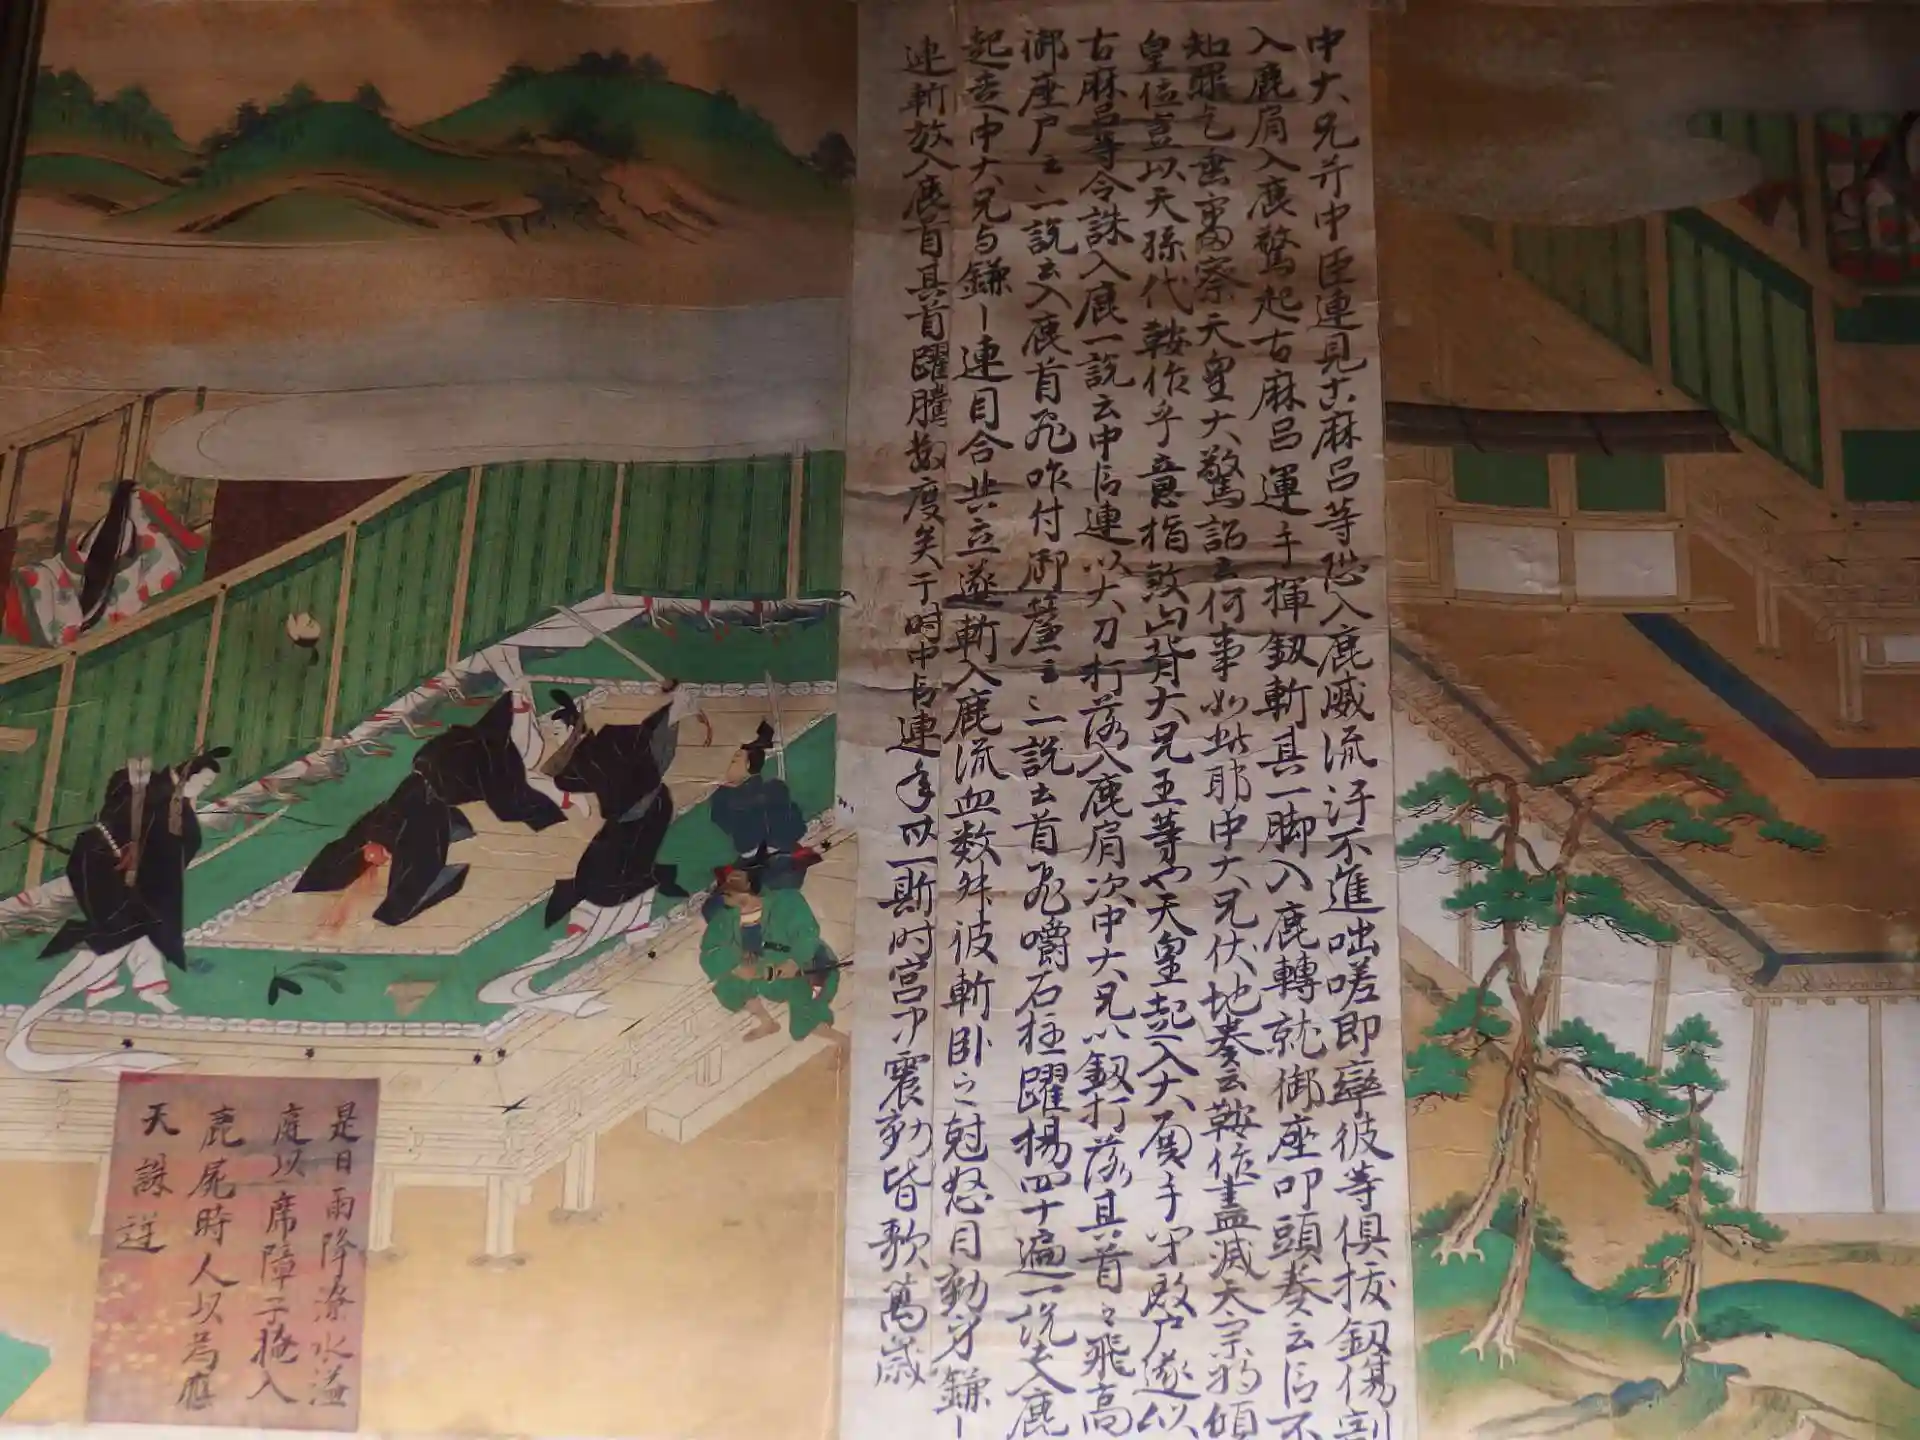 中大兄并中臣連見古麻呂等恐入鹿威流汗不進咄嗟即率彼等倶抜釼傷割
入鹿肩入鹿驚起古麻呂運手揮釼斬其一脚入鹿轉就御座叩頭奏云臣不
知罪乞垂審察天皇大驚詔云何事如此耶中大兄伏地奏云鞍作盡滅天宗将傾
皇位豈以天孫代鞍作乎意指敦山背大兄王等也天皇起入大
古麻呂等令誅入鹿一説云中臣連以大刀打落入鹿肩次中大兄以釼打落其首々飛高
御座戸云々一説云入鹿首飛咋付御簾云々一説云首飛嚼石柱躍揚四十遍一説云入鹿
起走中大兄与鎌〡連目合共立遂斬入鹿流血数舛彼斬卧之尅怒目動身鎌〡
連斬放入鹿首其首躍騰数度矣于時中臣連
是日雨降潦水溢
庭以席障子掩入
鹿屍時人以為應
天誅逆